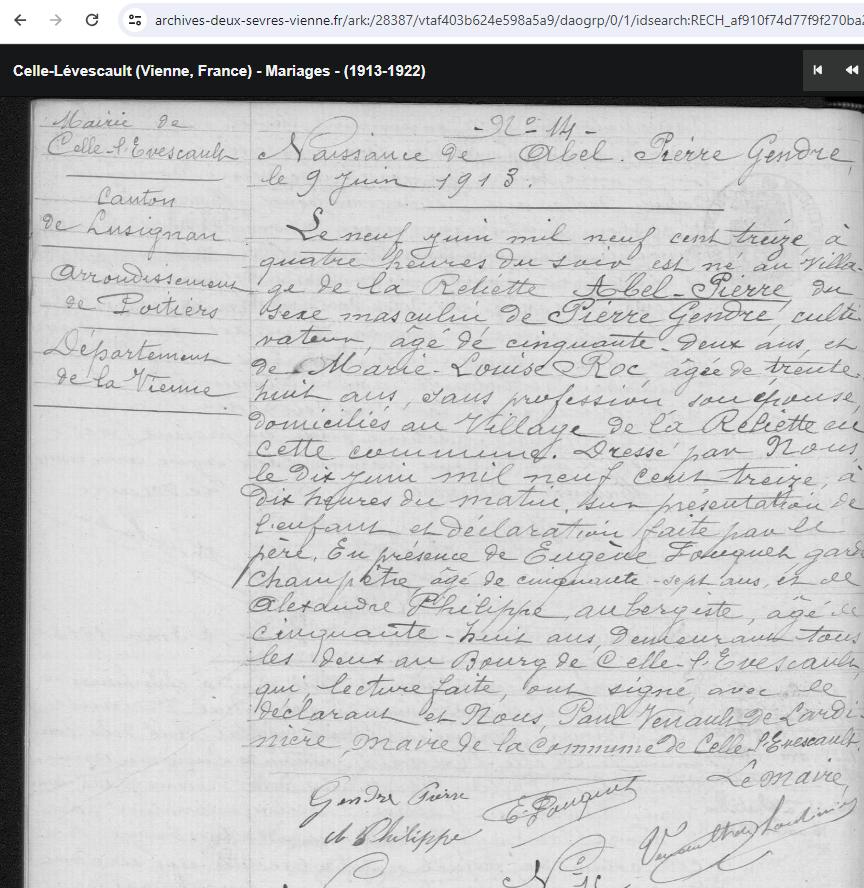 archives-deux-sevres-vienne.fr/ark:/28387/vtaf403b624e598a5a9/daogrp/0/1/idsearch:RECH_af910f74d77f9f270ba2
Celle-Lévescault (Vienne, France) - Mariages - (1913-1922)
Mairie de
Celle-l'Evescault
Canton
de Lusignan
Arrondissement
de Poitiers
Département
de la Vienne
- No 14 -
Naissance de Abel. Pierre Gendre,
le 9 Juin 1913.
Le neuf juin mil neuf cent treize, à
quatre heures du soir est né au Villa-
ge de la Reliette Abel-Pierre, du
sexe masculin de Pierre Gendre, culti
vateur, âgé de cinquante-deux ans, et
de Marie-Louise Roc, âgée de trente-
huit ans, sans profession, son épouse,
domiciliés au Village de la Reliette en
cette commune. Dressé par Nous,
le Dix juin mil neuf cent treize, à
Dix heures du matin, sur présentation de
l'enfant et déclaration faite par le
père. En présence de Eugène Fouquet, garde
Champêtre, âgé de cinquante-sept ans, et de
Alexandre Philippe, aubergiste, âgé de
cinquante-huit ans, Demeurant tous
les deux au Bourg de Celle-l'Evescault,
qui, lecture faite, ont signé avec le
déclarant et Nous, Paul Venault de Lardi-
nière, Maire de la Commune de Celle-l'Evescault.
Le Maire,
Gendre Pierre
E. Fouquet
A Philippe
Venault de Lardinière
No